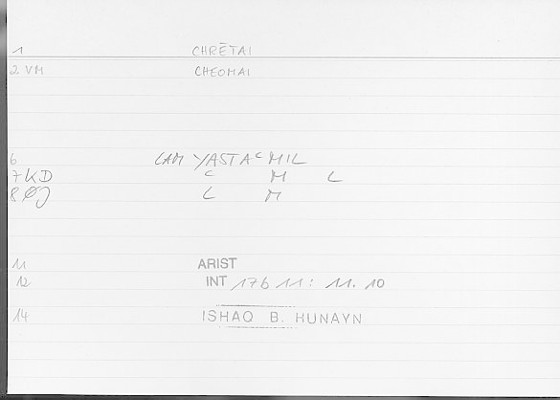 1 CHRĒTAI
2 VM CHEOMAI
6 LAM YASTAᶜMIL
7 KD C M L
8 ØJ L M
11 ARIST
12 INT 176 11: 11. 10
14 ISHAQ B. HUNAYN